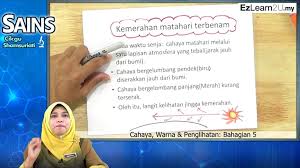 SAINS
Cikgu
Shamsuriati
EzLearn2U.my
Kemerahan matahari terbenam
waktu senja: Cahaya matahari melalui
lapisan atmosfera yang tebal(jarak jauh
dari bumi).
Cahaya bergelombang pendek(biru)
diserakkan jauh dari bumi.
Cahaya bergelombang panjang(Merah) kurang
terserak.
Oleh itu, langit kelihatan jingga kemerahan.
Cahaya, Warna & Penglihatan: Bahagian 5